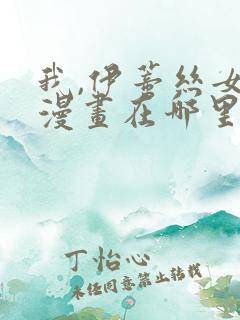 我,伊蕾丝女
漫畫在哪里
丁怡心
未经同意禁止转载